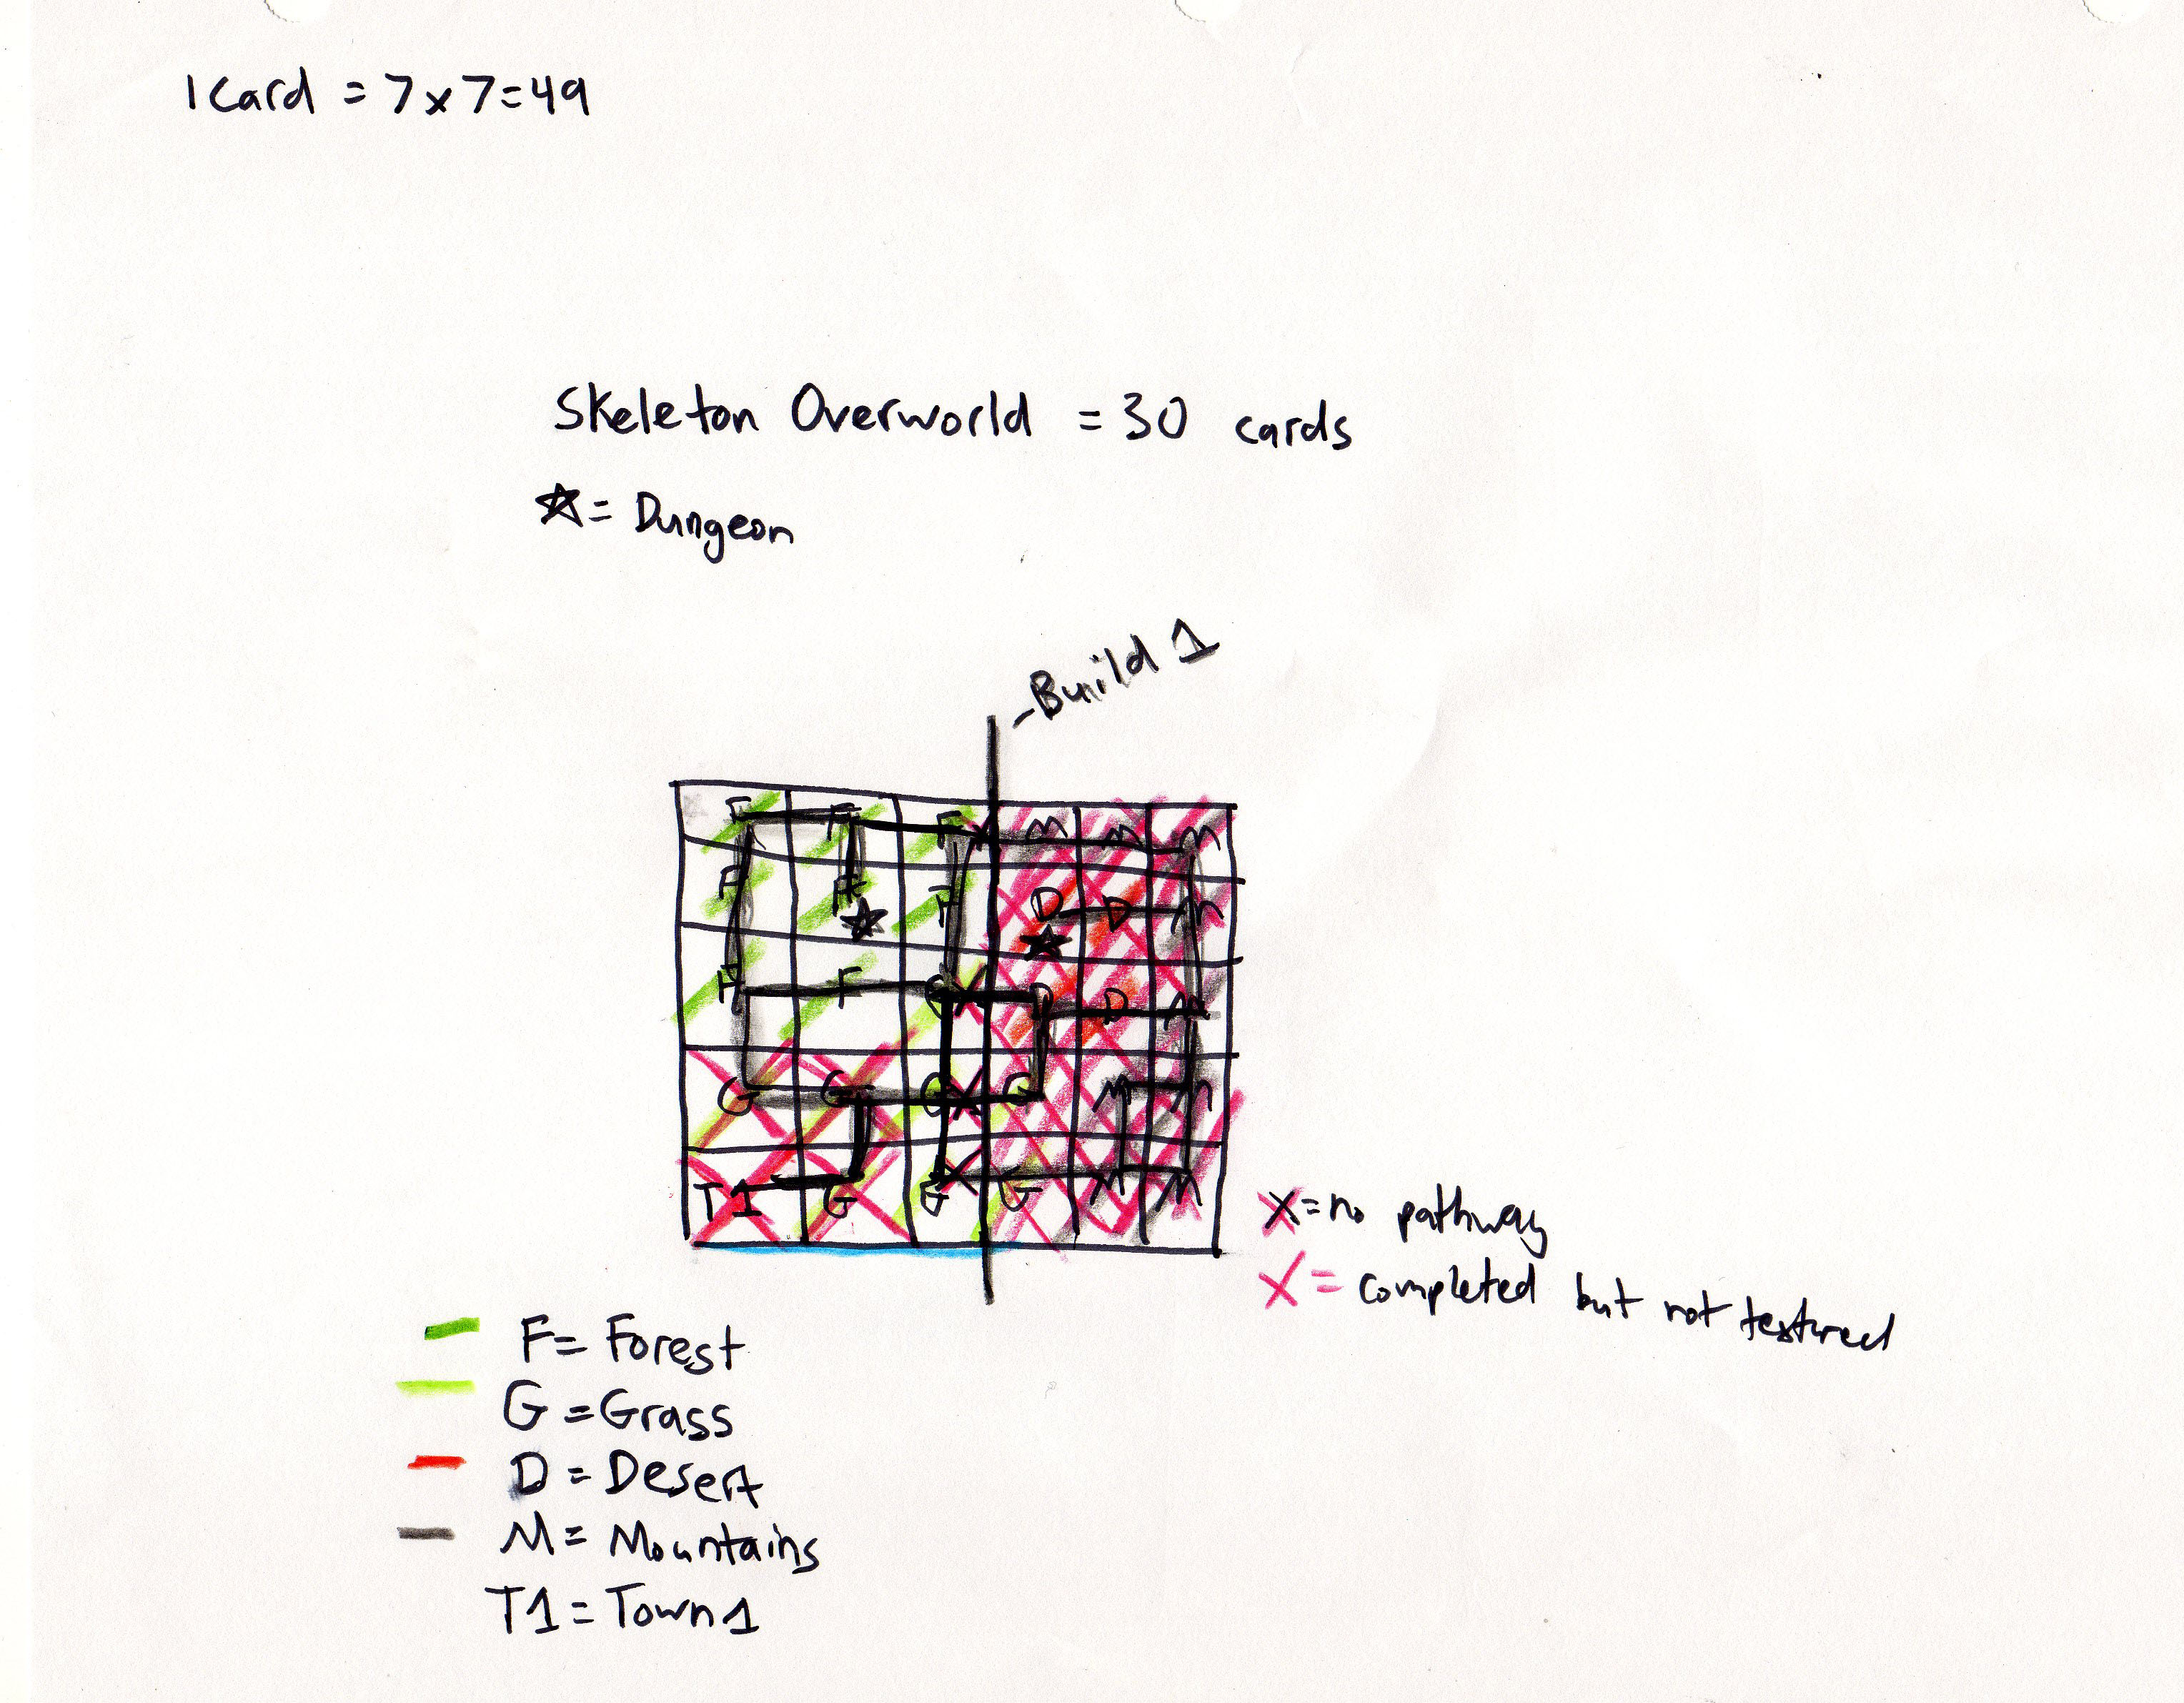 1 Card = 7x7=49
Skeleton Overworld = 30 cards
☆= Dungeon
-Build 1
F F F M M M
F F F D D M
F F G D D M
G G G G M M
T1 G G G M M
X=no pathway
X= completed but not textured
F= Forest
G =Grass
D =Desert
M= Mountains
T1=Town1